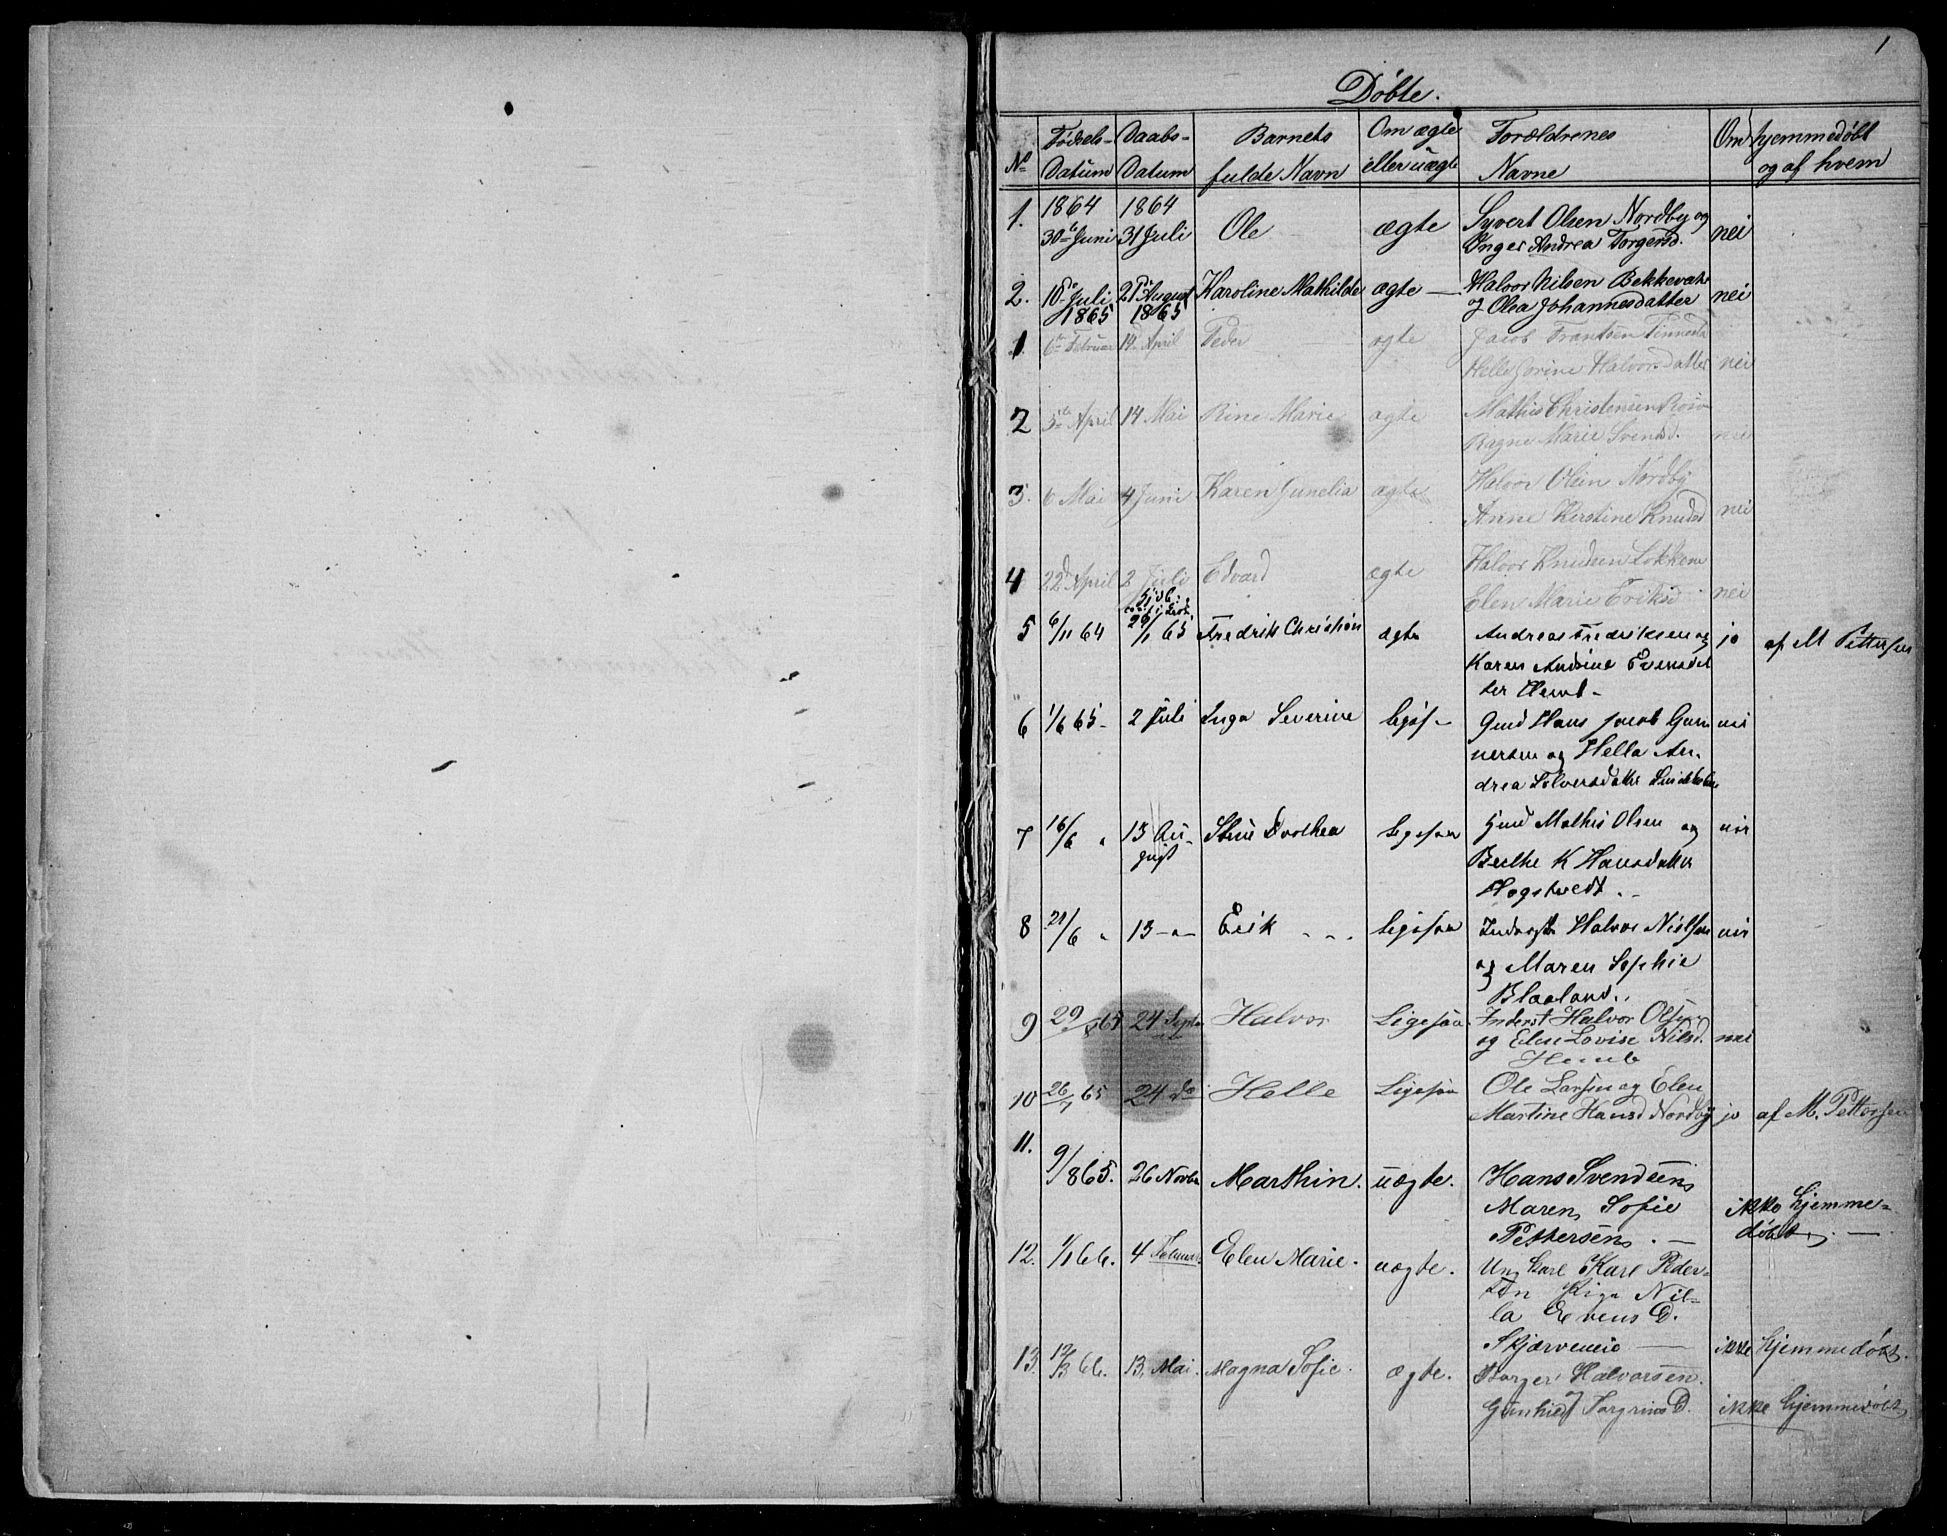 1
Døbte.
No Fødsels-Datum Daabs-Datum Barnets fulde Navn Om ægte eller uægte Forældrenes Navne Om hjemmedøbt og af hvem
1. 1864 30te Juni 1864 31 Juli Ole ægte Syvert Olsen Nordby og nei
Inger Andrea Torgersd.
2. Juli August Karoline Mathilde ægte — Halvor Nilsen nei
og Olea Johannesdatter
1865 1865
1. 6te Februar April Peder ægte Jacob Frantsen
Helle Jorine Halvorsdatter nei
2 5te April 14 Mai Rine Marie ægte Mathis Christensen
Ragne Marie Svendsd. nei
3. 6 Mai 4 Juni Karen Gunelia ægte Halvor Olsen Nordby
Anne Kirstine Knudsd nei
4 22d April 2 Juli Edvard ægte Halvor Knudsen
Elen Marie Eriksd. nei
5 6/11 64 26/1 65 Fredrik Christian ægte Andreas Fredriksen og jo af M Pettersen
Karen Andrine Evensdat
ter Hemb -
6 1/6 65 - 2 Juli Inga Severine liges - Gmd Hans Jacob Gun nei
nersen og Hella An-
drea Solversdatter
7 16/6 " 13 Au- Stine Dorthea Ligesaa Gmd Mathis Olsen og nei
gust Berthe K Hansdatter
Hogstvedt . -
8 21/6 " 13 - " - Erik - . . Ligesaa Inderst Halvor Nielsen nei
og Maren Sophie
Blaaland.
9 29/8 65 24 Septe Halvor Ligesaa Inderst Halvor Olsen
og Elen Lovise Nilsd. nei
Hemb
10 26/7 65 24 do Helle Ligesaa Ole Larsen og Elen
Martine Hansd Nordby jo af M. Pettersen
11. 9/8 65. 26 Novbr Marthin. uægte. Hans Svendsen
Maren Sofie ikke hjemme=
Pettersen. — døbt. —
12. 1/1 66. 4 Februar. Elen Marie. uægte. Ung Karl Karl Peder-
sen Pige Nil-
la Evens D.
Skjærveneie — ikke hjemmedøbt.
13. 12/3 66. 13. Mai. Magna Sofie. ægte. Borger Halvorsen.
og Gunhild Torgrims D. ikke hjemmedøbt